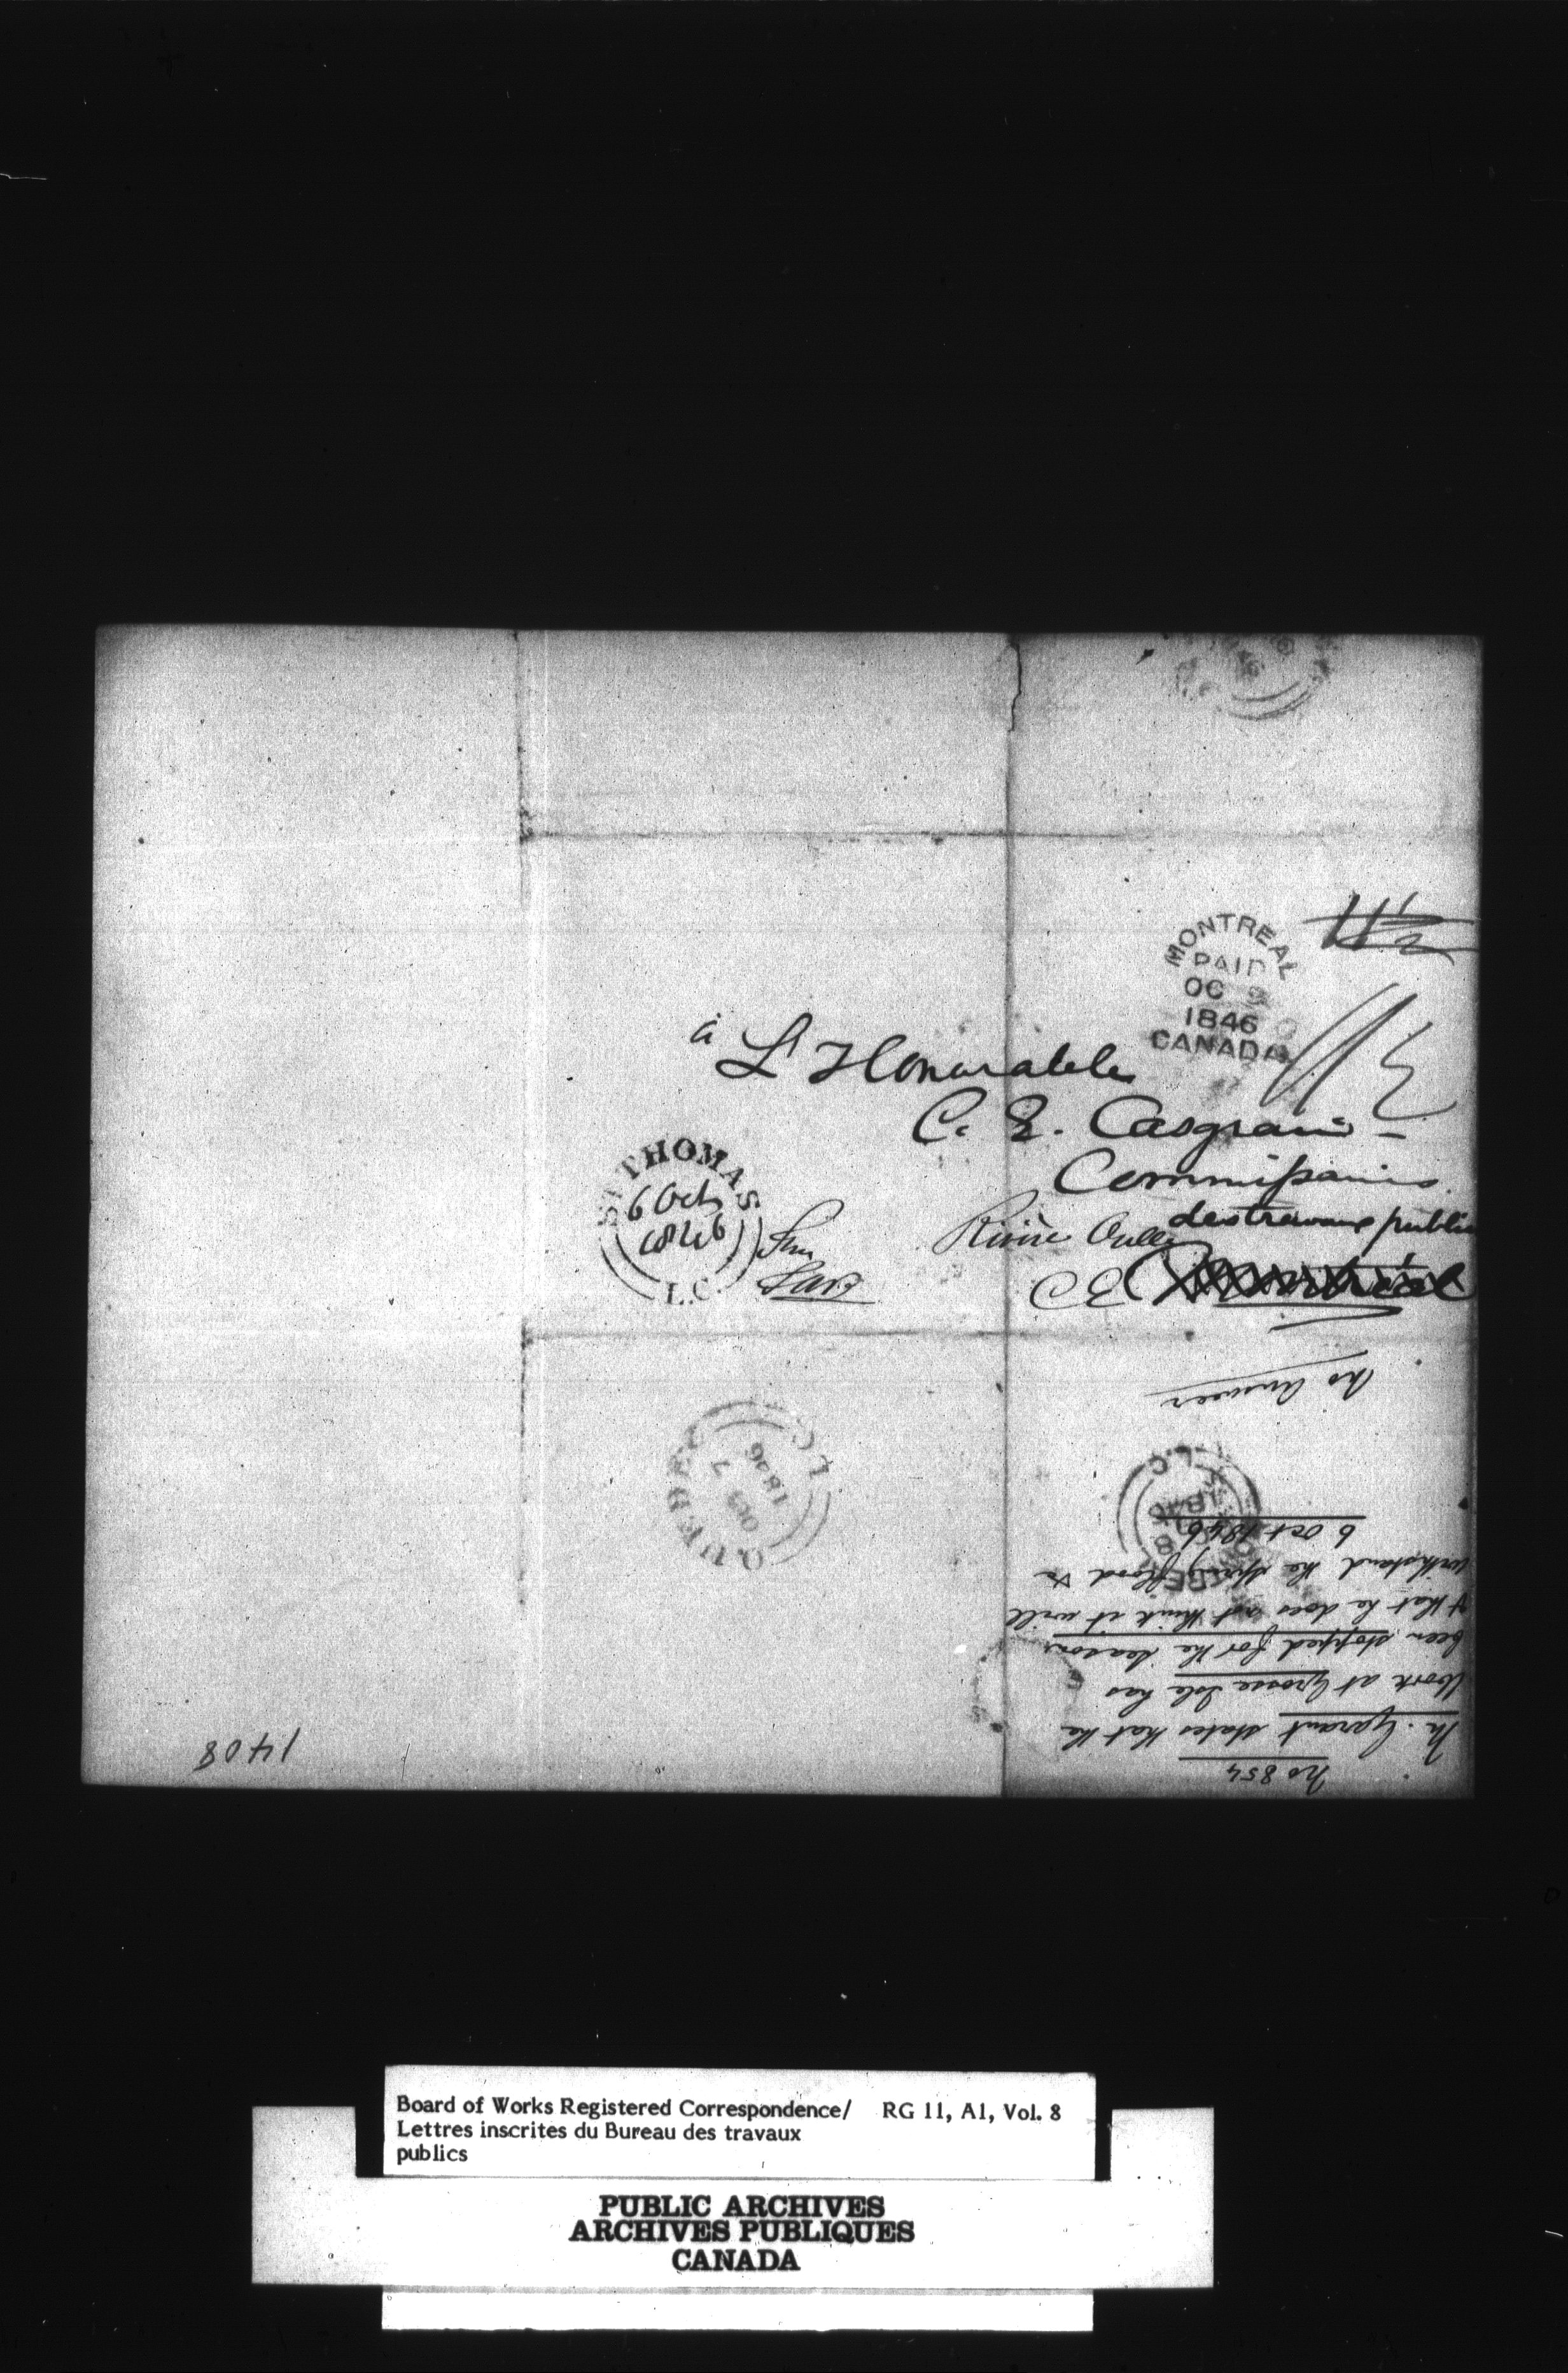 MONTREAL
PAID
OC
1846
CANADA
à L'Honorable
C. E. Casgrain -
Commissaire
des travaux public
Rivière Ouelle
CE Montréal
ST THOMAS
6 Oct
1846
L.C.
No Answer
QUEBEC
OC 7
1846
L.C.
L.C
No 854
M. Garant states that the
Work at Grosse Isle has
been stopped for the season
& that he does not think it will
withstand the spring flood &c
6 Oct 1846
1408
Board of Works Registered Correspondence/ RG 11, A1, Vol. 8
Lettres inscrites du Bureau des travaux
publics
PUBLIC ARCHIVES
ARCHIVES PUBLIQUES
CANADA